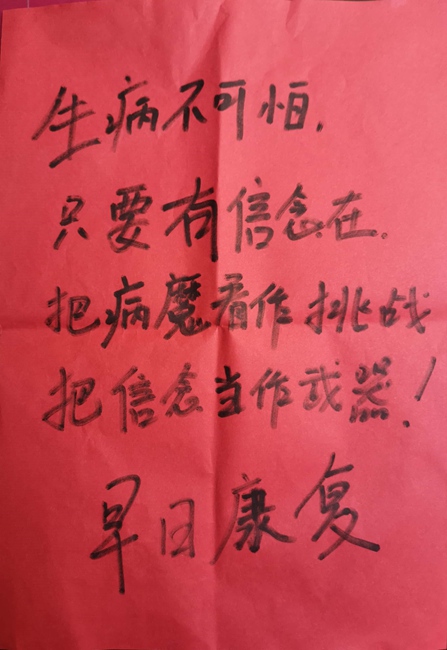 生病不可怕,
只要有信念在.
把病魔看作挑战
把信念当作武器!
早日康复